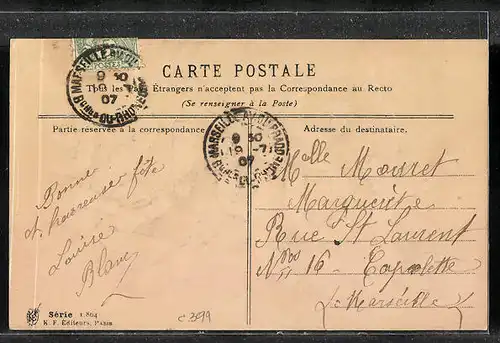 MARSEILLE AV. DU PRADO
9 30
07
Bches DU-RHONE
CARTE POSTALE
Tous les Pays Étrangers n'acceptent pas la Correspondance au Recto
(Se renseigner à la Poste)
Partie réservée à la correspondance
Adresse du destinataire.
MARSEILLE AV. DU PRADO
9 30
19 -7
07
Bches DU-RHONE
Bonne
et heureuse fête
Louise
Blanc
Melle Mouret
Marguerite
Rue St Laurent
Nos 16 - Capelette
Marseille
Série 1.804
K. F. Éditeurs, Paris
c 3599